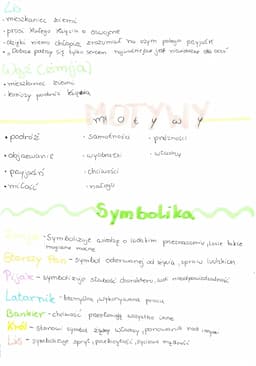 Lis
- mieszkaniec ziemi
- prosi Małego Księcia o oswojenie
- dzięki niemu chłopiec zrozumiał na czym polega przyjaźń
- „Dobrze patrzy się tylko sercem. Najważniejsze jest niewidoczne dla oczu"
Wąż (żmija)
- mieszkaniec ziemi
- kończy podróż Księcia
MOTYWY
motywy
• podróż • samotność • próżności
• obojętność • wyobraźni • władzy
• przyjaźń • chciwości
• miłość • nałogu
Symbolika
- Symbolizuje wiedzę o ludzkim przeznaczeniu, inne także
Starszy Pan - symbol oderwanej od życia, spraw ludzkich
Pijak - symbolizuje słabość charakteru, nieodpowiedzialność
Latarnik - bezmyślna, wykonywana praca
Bankier - chciwość przesłaniają wszystko inne
Król - stanowi symbol żądzy władzy, panowania nad innymi
Lis - symbolizuje spryt, przebiegłość, życiową mądrość